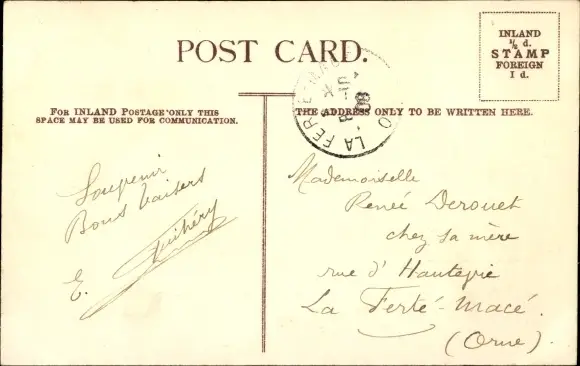 POST CARD.
INLAND
½ d.
STAMP
FOREIGN
1 d.
FOR INLAND POSTAGE ONLY THIS
SPACE MAY BE USED FOR COMMUNICATION.
THE ADDRESS ONLY TO BE WRITTEN HERE.
LA FERTE-MACE
Souvenir
Bons baisers
E. Guihéry
Mademoiselle
Renée Derouet
chez sa mère
rue d'Hautvie
La Ferté-Macé.
(Orne).